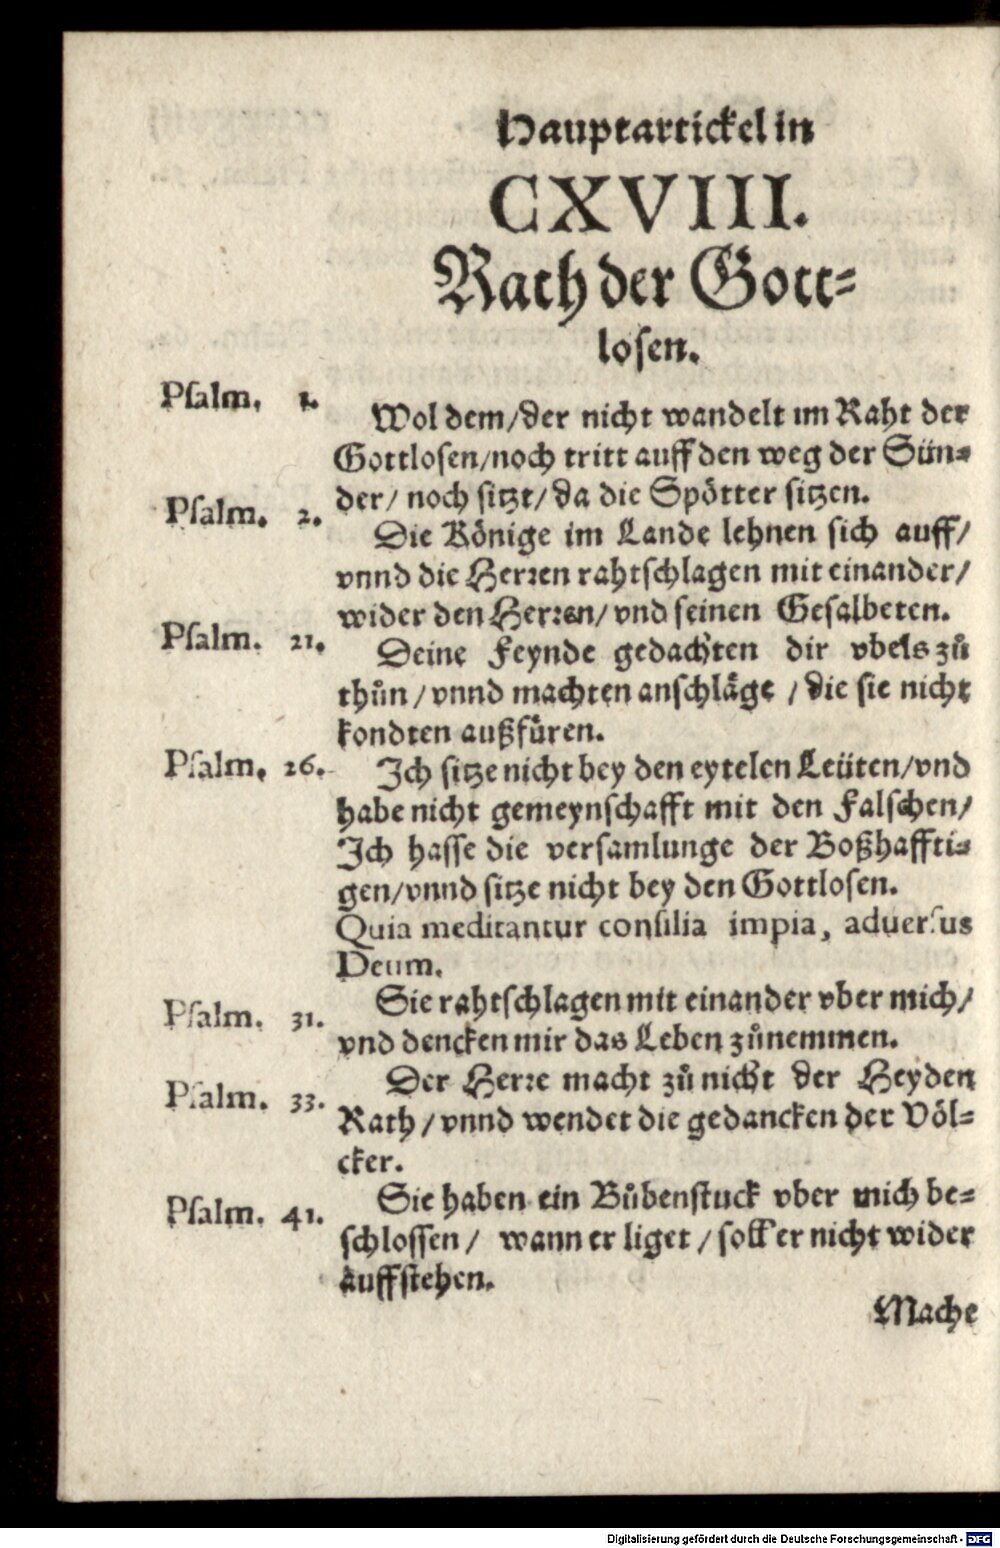 Hauptartickel in
CXVIII.
Rath der Gott-
losen.
Psalm. 1.
Wol dem/der nicht wandelt im Raht der
Gottlosen/noch tritt auff den weg der Sün-
der/ noch sitzt/da die Spötter sitzen.
Psalm. 2.
Die Könige im Lande lehnen sich auff/
vnnd die Herren rahtschlagen mit einander/
wider den Herren/ vnd seinen Gesalbeten.
Psalm. 21.
Deine Feynde gedachten dir vbels zů
thůn/vnnd machten anschläge /die sie nicht
kondten außfüren.
Psalm. 26.
Ich sitze nicht bey den eytelen Leüten/vnd
habe nicht gemeynschafft mit den Falschen/
Ich hasse die versamlunge der Boßhaffti-
gen/vnnd sitze nicht bey den Gottlosen.
Quia meditantur consilia impia, aduersus
Deum.
Psalm. 31.
Sie rahtschlagen mit einander vber mich/
vnd dencken mir das Leben zůnemmen.
Psalm. 33.
Der Herre macht zů nicht der Heyden
Rath/vnnd wendet die gedancken der Völ-
cker.
Psalm. 41.
Sie haben ein Bůbenstuck vber mich be-
schlossen/ wann er liget/soll er nicht wider
auffstehen.
Mache
Digitalisierung gefördert durch die Deutsche Forschungsgemeinschaft - DFG